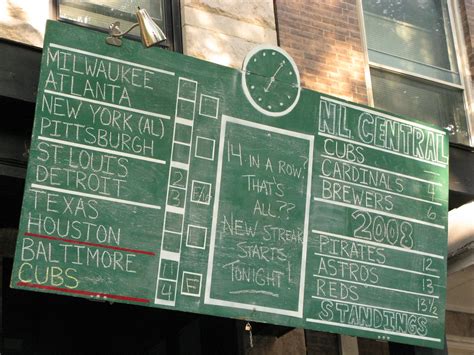 MILWAUKEE
ATLANTA
NEW YORK (AL)
PITTSBURGH
ST LOUIS 2
DETROIT 3
TEXAS
HOUSTON
BALTIMORE 11
CUBS 4 F
14 IN A ROW?
THAT'S
ALL??
NEW STREAK
STARTS
TONIGHT!
NL CENTRAL
CUBS
CARDINALS 4
BREWERS 6
2008
PIRATES 12
ASTROS 13
REDS 13½
STANDINGS